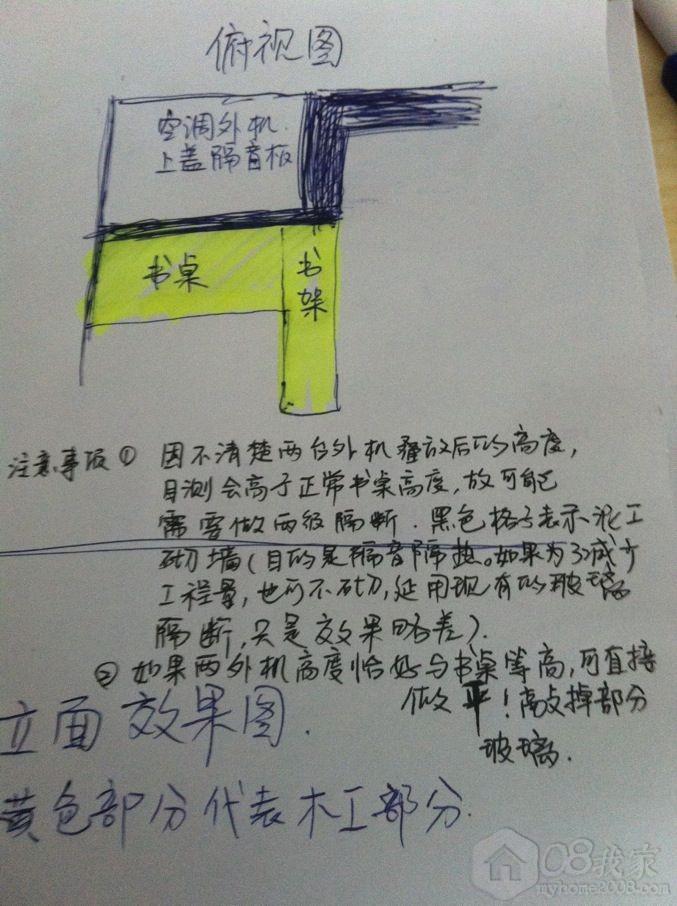 俯视图
空调外机.
上盖隔音板
书桌
书架
注意事项① 因不清楚两台外机叠放后的高度,
目测会高于正常书桌高度,故可能
需要做两级隔断.黑色格子表示泥工
砌墙(目的是隔音隔热。如果为了减少
工程量,也可不砌,延用现有的玻璃
隔断,只是效果略差).
②如果两外机高度恰好与书桌等高,可直接
做平!敲掉部分
玻璃.
立面效果图.
黄色部分代表木工部分.
08我家
myhome2008.com